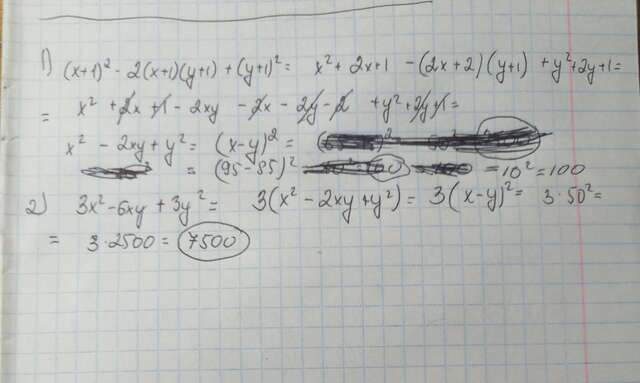 1) (x+1)² - 2(x+1)(y+1) + (y+1)² = x² + 2x+1 - (2x+2)(y+1) + y²+2y+1 =
= x² + 2x + 1 - 2xy - 2x - 2y - 2 + y² + 2y + 1 =
x² - 2xy + y² = (x-y)² =
= (95-85)² = 10² = 100
2) 3x² - 6xy + 3y² = 3(x² - 2xy + y²) = 3(x-y)² = 3·50² =
= 3·2500 = 7500